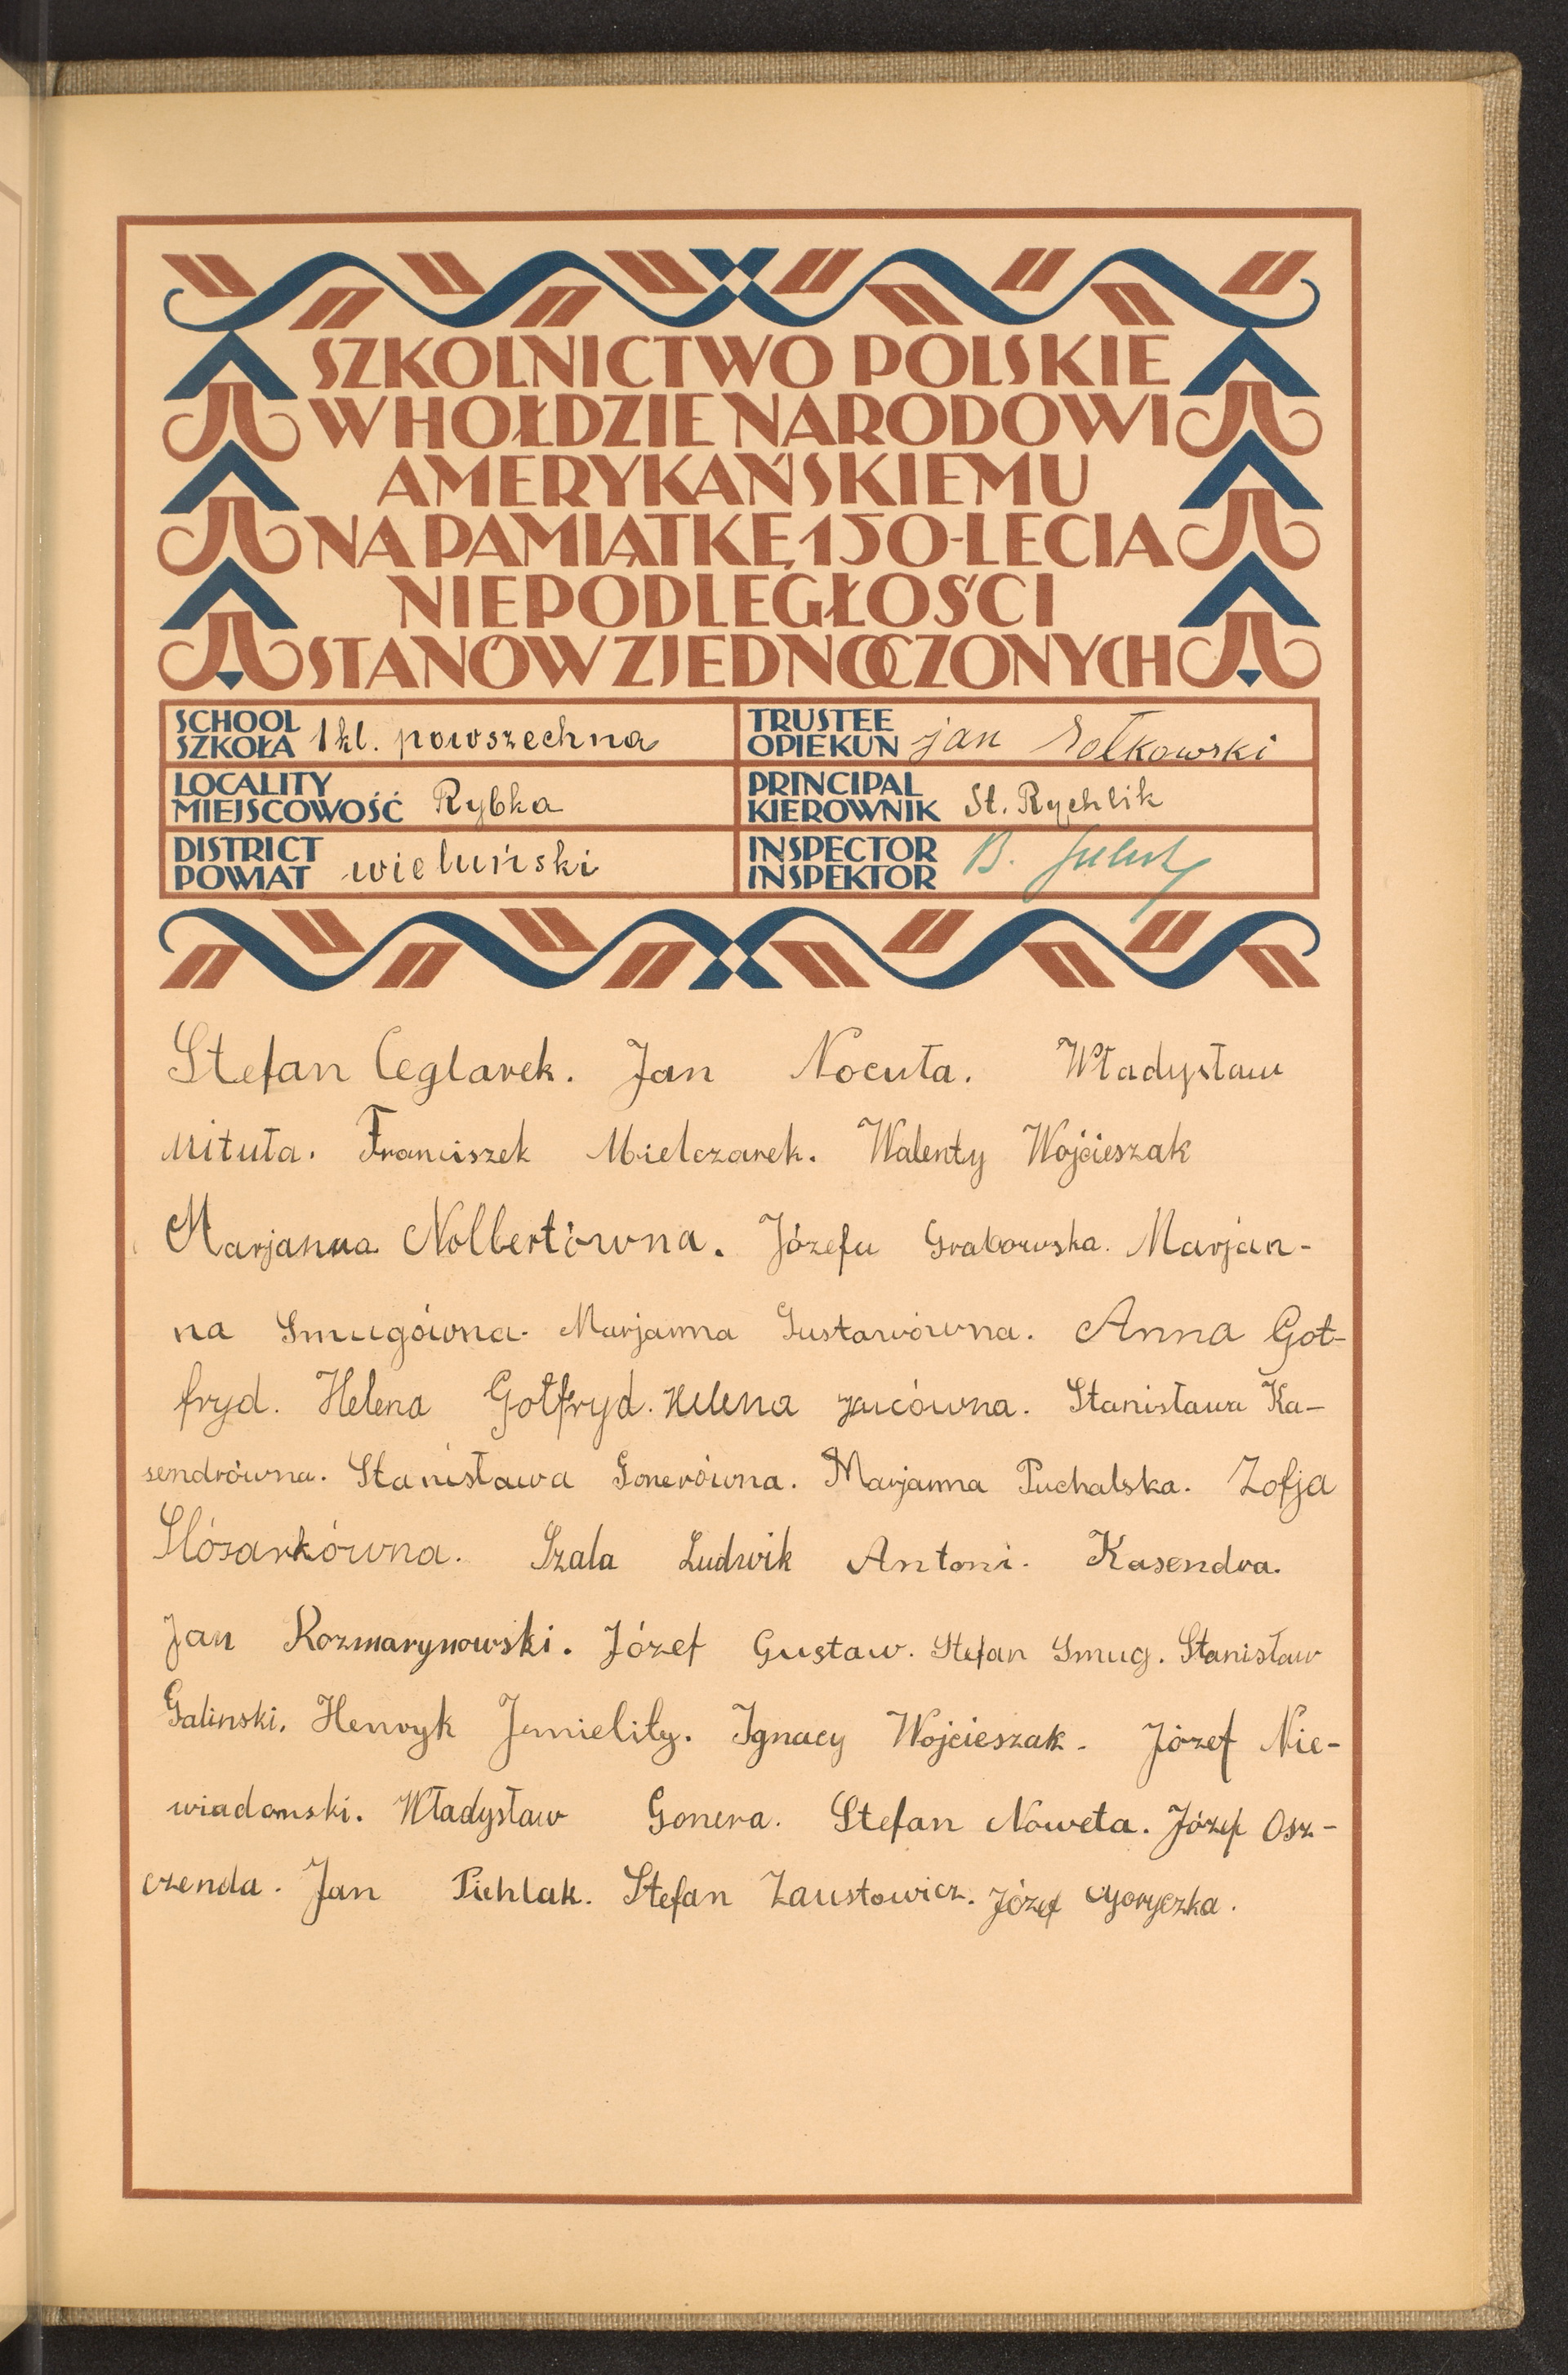 SZKOLNICTWO POLSKIE
W HOŁDZIE NARODOWI
AMERYKAŃSKIEMU
NA PAMIĄTKĘ 150-LECIA
NIEPODLEGŁOŚCI
STANÓW ZJEDNOCZONYCH
SCHOOL
SZKOŁA 1 kl. powszechna
TRUSTEE
OPIEKUN jan Sołkowski
LOCALITY
MIEJSCOWOŚĆ Rybka
PRINCIPAL
KIEROWNIK St. Rychlik
DISTRICT
POWIAT wieluński
INSPECTOR
INSPEKTOR B.
Stefan Ceglarek. Jan Nocuła. Władysław
Mituła. Franciszek Mielczarek. Walenty Wojcieszak
Marjanna Nolbertówna. Józefa Grabowska. Marjan-
na Smugówna. Marjanna Gustawówna. Anna Got-
fryd. Helena Gotfryd. Helena Stanisława Ka-
sendrówna. Stanisława Gonerówna. Marjanna Puchalska. Zofja
Slósarkówna. Szala Ludwik Antoni. Kasendra.
Jan Rozmarynowski. Józef Gustaw. Stefan Smug. Stanisław
Galinski. Henryk Jemielity. Ignacy Wojcieszak. Józef Nie-
wiadomski. Władysław Gonera. Stefan Noweta. Józef Osz-
czenda. Jan Piehlak. Stefan Zaustowicz. Józef